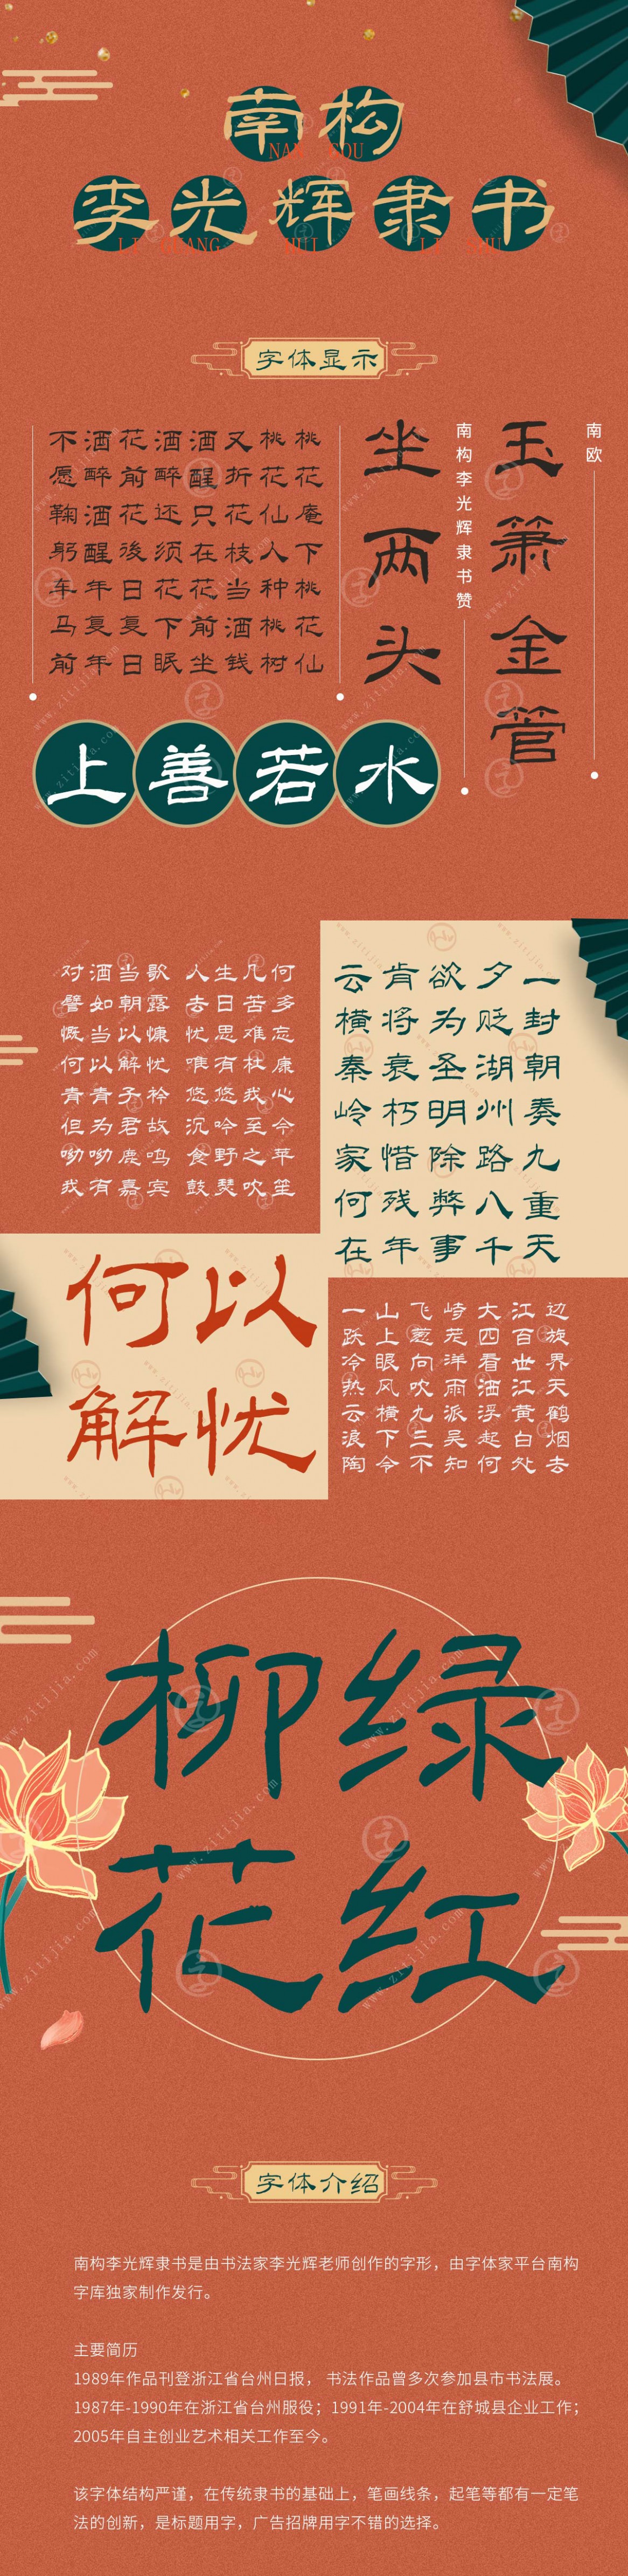 南构
NAN GOU
李光辉隶书
LI GUANG HUI LI SHU
字体显示
南欧
玉箫金管
南构李光辉隶书赞
坐两头
桃花庵下桃花仙
桃花仙人种桃树
又折花枝当酒钱
酒醒只在花前坐
酒醉还须花下眠
花前花後日复日
酒醉酒醒年复年
不愿鞠躬车马前
上善若水
对酒当歌 人生几何
譬如朝露 去日苦多
慨当以慷 忧思难忘
何以解忧 唯有杜康
青青子衿 悠悠我心
但为君故 沉吟至今
呦呦鹿鸣 食野之苹
我有嘉宾 鼓瑟吹笙
一封朝奏九重天
夕贬湖州路八千
欲为圣明除弊事
肯将衰朽惜残年
云横秦岭家何在
何以
解忧
一山飞峙大江边
跃上葱茏四百旋
冷眼向洋看世界
热风吹雨洒江天
云横九派浮黄鹤
浪下三吴起白烟
陶令不知何处去
柳绿
花红
字体介绍
南构李光辉隶书是由书法家李光辉老师创作的字形，由字体家平台南构
字库独家制作发行。
主要简历
1989年作品刊登浙江省台州日报， 书法作品曾多次参加县市书法展。
1987年-1990年在浙江省台州服役；1991年-2004年在舒城县企业工作；
2005年自主创业艺术相关工作至今。
该字体结构严谨，在传统隶书的基础上，笔画线条，起笔等都有一定笔
法的创新，是标题用字，广告招牌用字不错的选择。
www.zitijia.com